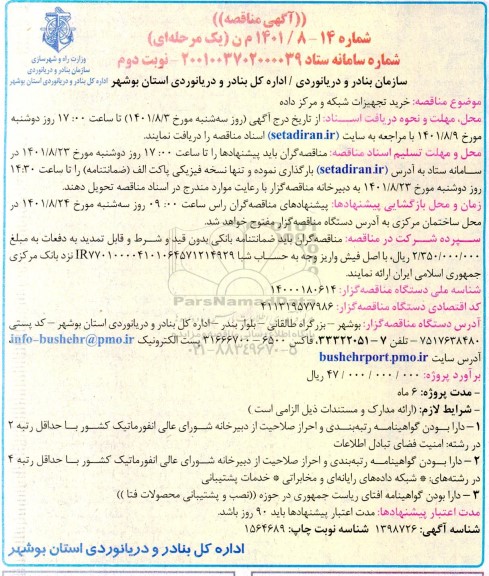 ((آگهی مناقصه))
شماره ۱۴ - ۸ / ۱۴۰۱ م ن (یک مرحله‌ای)
شماره سامانه ستاد ۲۰۰۱۰۰۳۷۰۲۰۰۰۰۳۹ - نوبت دوم
وزارت راه و شهرسازی
سازمان بنادر و دریانوردی
اداره کل بنادر و دریانوردی استان بوشهر
سازمان بنادر و دریانوردی / اداره کل بنادر و دریانوردی استان بوشهر
موضوع مناقصه: خرید تجهیزات شبکه و مرکز داده
محل، مهلت و نحوه دریافت اسناد: از تاریخ درج آگهی (روز سه‌شنبه مورخ ۱۴۰۱/۸/۳) تا ساعت ۱۷:۰۰ روز دوشنبه
مورخ ۱۴۰۱/۸/۹ با مراجعه به سایت (setadiran.ir) اسناد مناقصه را دریافت نمایند.
محل و مهلت تسلیم اسناد مناقصه: مناقصه‌گران باید پیشنهادها را تا ساعت ۱۷:۰۰ روز دوشنبه مورخ ۱۴۰۱/۸/۲۳ در
سامانه ستاد به آدرس (setadiran.ir) بارگذاری نموده و تنها نسخه فیزیکی پاکت الف (ضمانتنامه) را تا ساعت ۱۴:۳۰
روز دوشنبه مورخ ۱۴۰۱/۸/۲۳ به دبیرخانه مناقصه‌گزار با رعایت موارد مندرج در اسناد مناقصه تحویل دهند.
زمان و محل بازگشایی پیشنهادها: پیشنهادهای مناقصه‌گران راس ساعت ۰۹:۰۰ روز سه‌شنبه مورخ ۱۴۰۱/۸/۲۴ در
محل ساختمان مرکزی به آدرس دستگاه مناقصه‌گزار مفتوح خواهد شد.
سپرده شرکت در مناقصه: مناقصه‌گران باید ضمانتنامه بانکی بدون قید و شرط و قابل تمدید به دفعات به مبلغ
۲/۳۵۰/۰۰۰/۰۰۰ ریال، یا اصل فیش واریز وجه به حساب شبا IR۷۷۰۱۰۰۰۰۴۱۰۱۰۶۴۵۷۱۲۱۴۹۲۹ نزد بانک مرکزی
جمهوری اسلامی ایران ارائه نمایند.
شناسه ملی دستگاه مناقصه‌گزار: ۱۴۰۰۰۱۸۰۶۱۴
کد اقتصادی دستگاه مناقصه‌گزار: ۴۱۱۳۱۹۵۷۷۹۸۶
آدرس دستگاه مناقصه‌گزار: بوشهر - بزرگراه طالقانی - بلوار بندر - اداره کل بنادر و دریانوردی استان بوشهر - کد پستی
۷۵۱۷۶۳۸۴۸۰ - تلفن ۷-۳۳۳۲۲۰۵۱، فاکس ۶۵۰۰ - ۳۱۶۶۶۷۰۰ پست الکترونیک info-bushehr@pmo.ir،
آدرس سایت bushehrport.pmo.ir
برآورد پروژه: ۴۷/۰۰۰/۰۰۰/۰۰۰ ریال
- مدت پروژه: ۶ ماه
- شرایط لازم: (ارائه مدارک و مستندات ذیل الزامی است)
۱- دارا بودن گواهینامه رتبه‌بندی و احراز صلاحیت از دبیرخانه شورای عالی انفورماتیک کشور با حداقل رتبه ۲
در رشته: امنیت فضای تبادل اطلاعات
۲- دارا بودن گواهینامه رتبه‌بندی و احراز صلاحیت از دبیرخانه شورای عالی انفورماتیک کشور با حداقل رتبه ۴
در رشته‌های: * شبکه داده‌های رایانه‌ای و مخابراتی * خدمات پشتیبانی
۳- دارا بودن گواهینامه افتای ریاست جمهوری در حوزه ((نصب و پشتیبانی محصولات فتا))
مدت اعتبار پیشنهادها: مدت اعتبار پیشنهادها باید ۹۰ روز باشد.
شناسه آگهی: ۱۳۹۸۷۲۶ شناسه نوبت چاپ: ۱۵۶۴۶۸۹
اداره کل بنادر و دریانوردی استان بوشهر
ParsNamadData
۰۲۱-۸۸۳۴۹۶۷۰